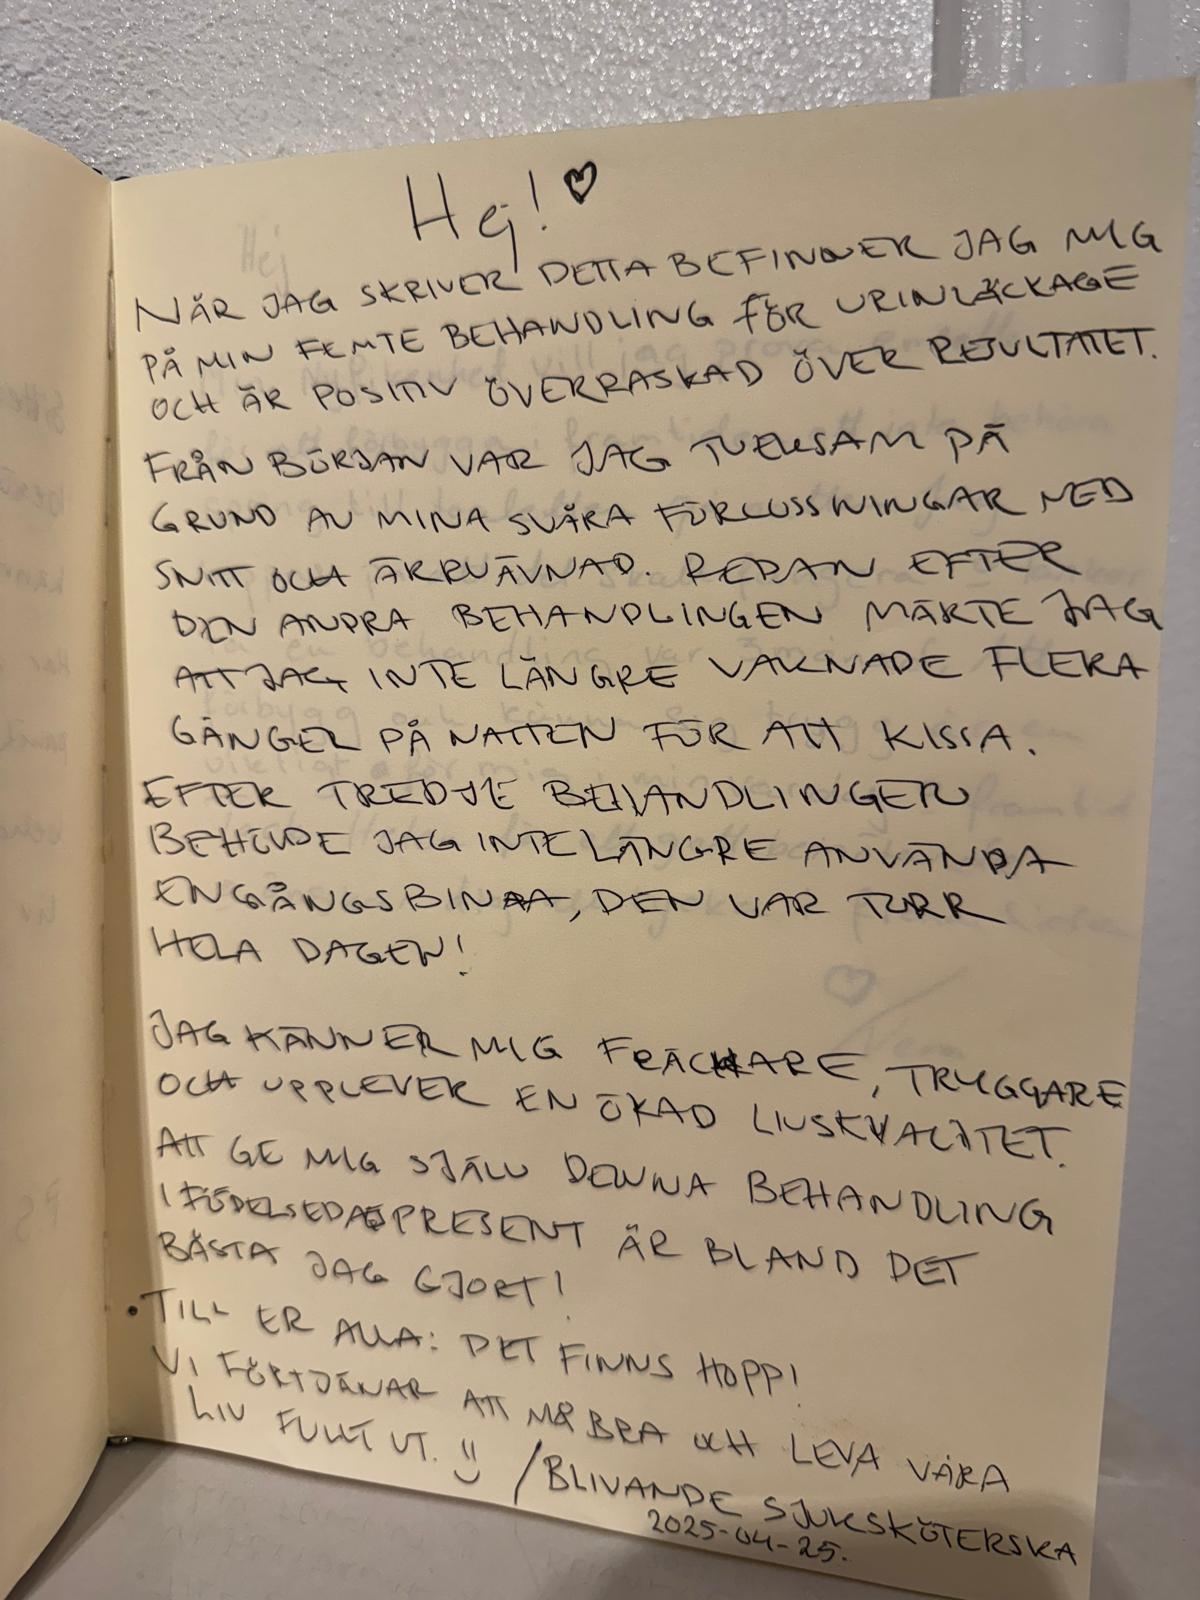 Hej! ♡
NÄR JAG SKRIVER DETTA BEFINNER JAG MIG
PÅ MIN FEMTE BEHANDLING FÖR URINLÄCKAGE
OCH ÄR POSITIV ÖVERRASKAD ÖVER RESULTATET.
FRÅN BÖRJAN VAR JAG TVEKSAM PÅ
GRUND AV MINA SVÅRA FÖRLOSSNINGAR MED
SNITT OCH ÄRRVÄVNAD. REDAN EFTER
DEN ANDRA BEHANDLINGEN MÄRKTE JAG
ATT JAG INTE LÄNGRE VAKNADE FLERA
GÅNGER PÅ NATTEN FÖR ATT KISSA.
EFTER TREDJE BEHANDLINGEN
BEHÖVDE JAG INTE LÄNGRE ANVÄNDA
ENGÅNGSBINDA, DEN VAR TORR
HELA DAGEN!
JAG KÄNNER MIG FRÄCHARE, TRYGGARE
OCH UPPLEVER EN ÖKAD LIVSKVALITET.
ATT GE MIG SJÄLV DENNA BEHANDLING
I FÖDELSEDAGSPRESENT ÄR BLAND DET
BÄSTA JAG GJORT!
• TILL ER ALLA: DET FINNS HOPP!
VI FÖRTJÄNAR ATT MÅ BRA OCH LEVA VÅRA
LIV FULLT UT. :)
/BLIVANDE SJUKSKÖTERSKA
2025-04-25.